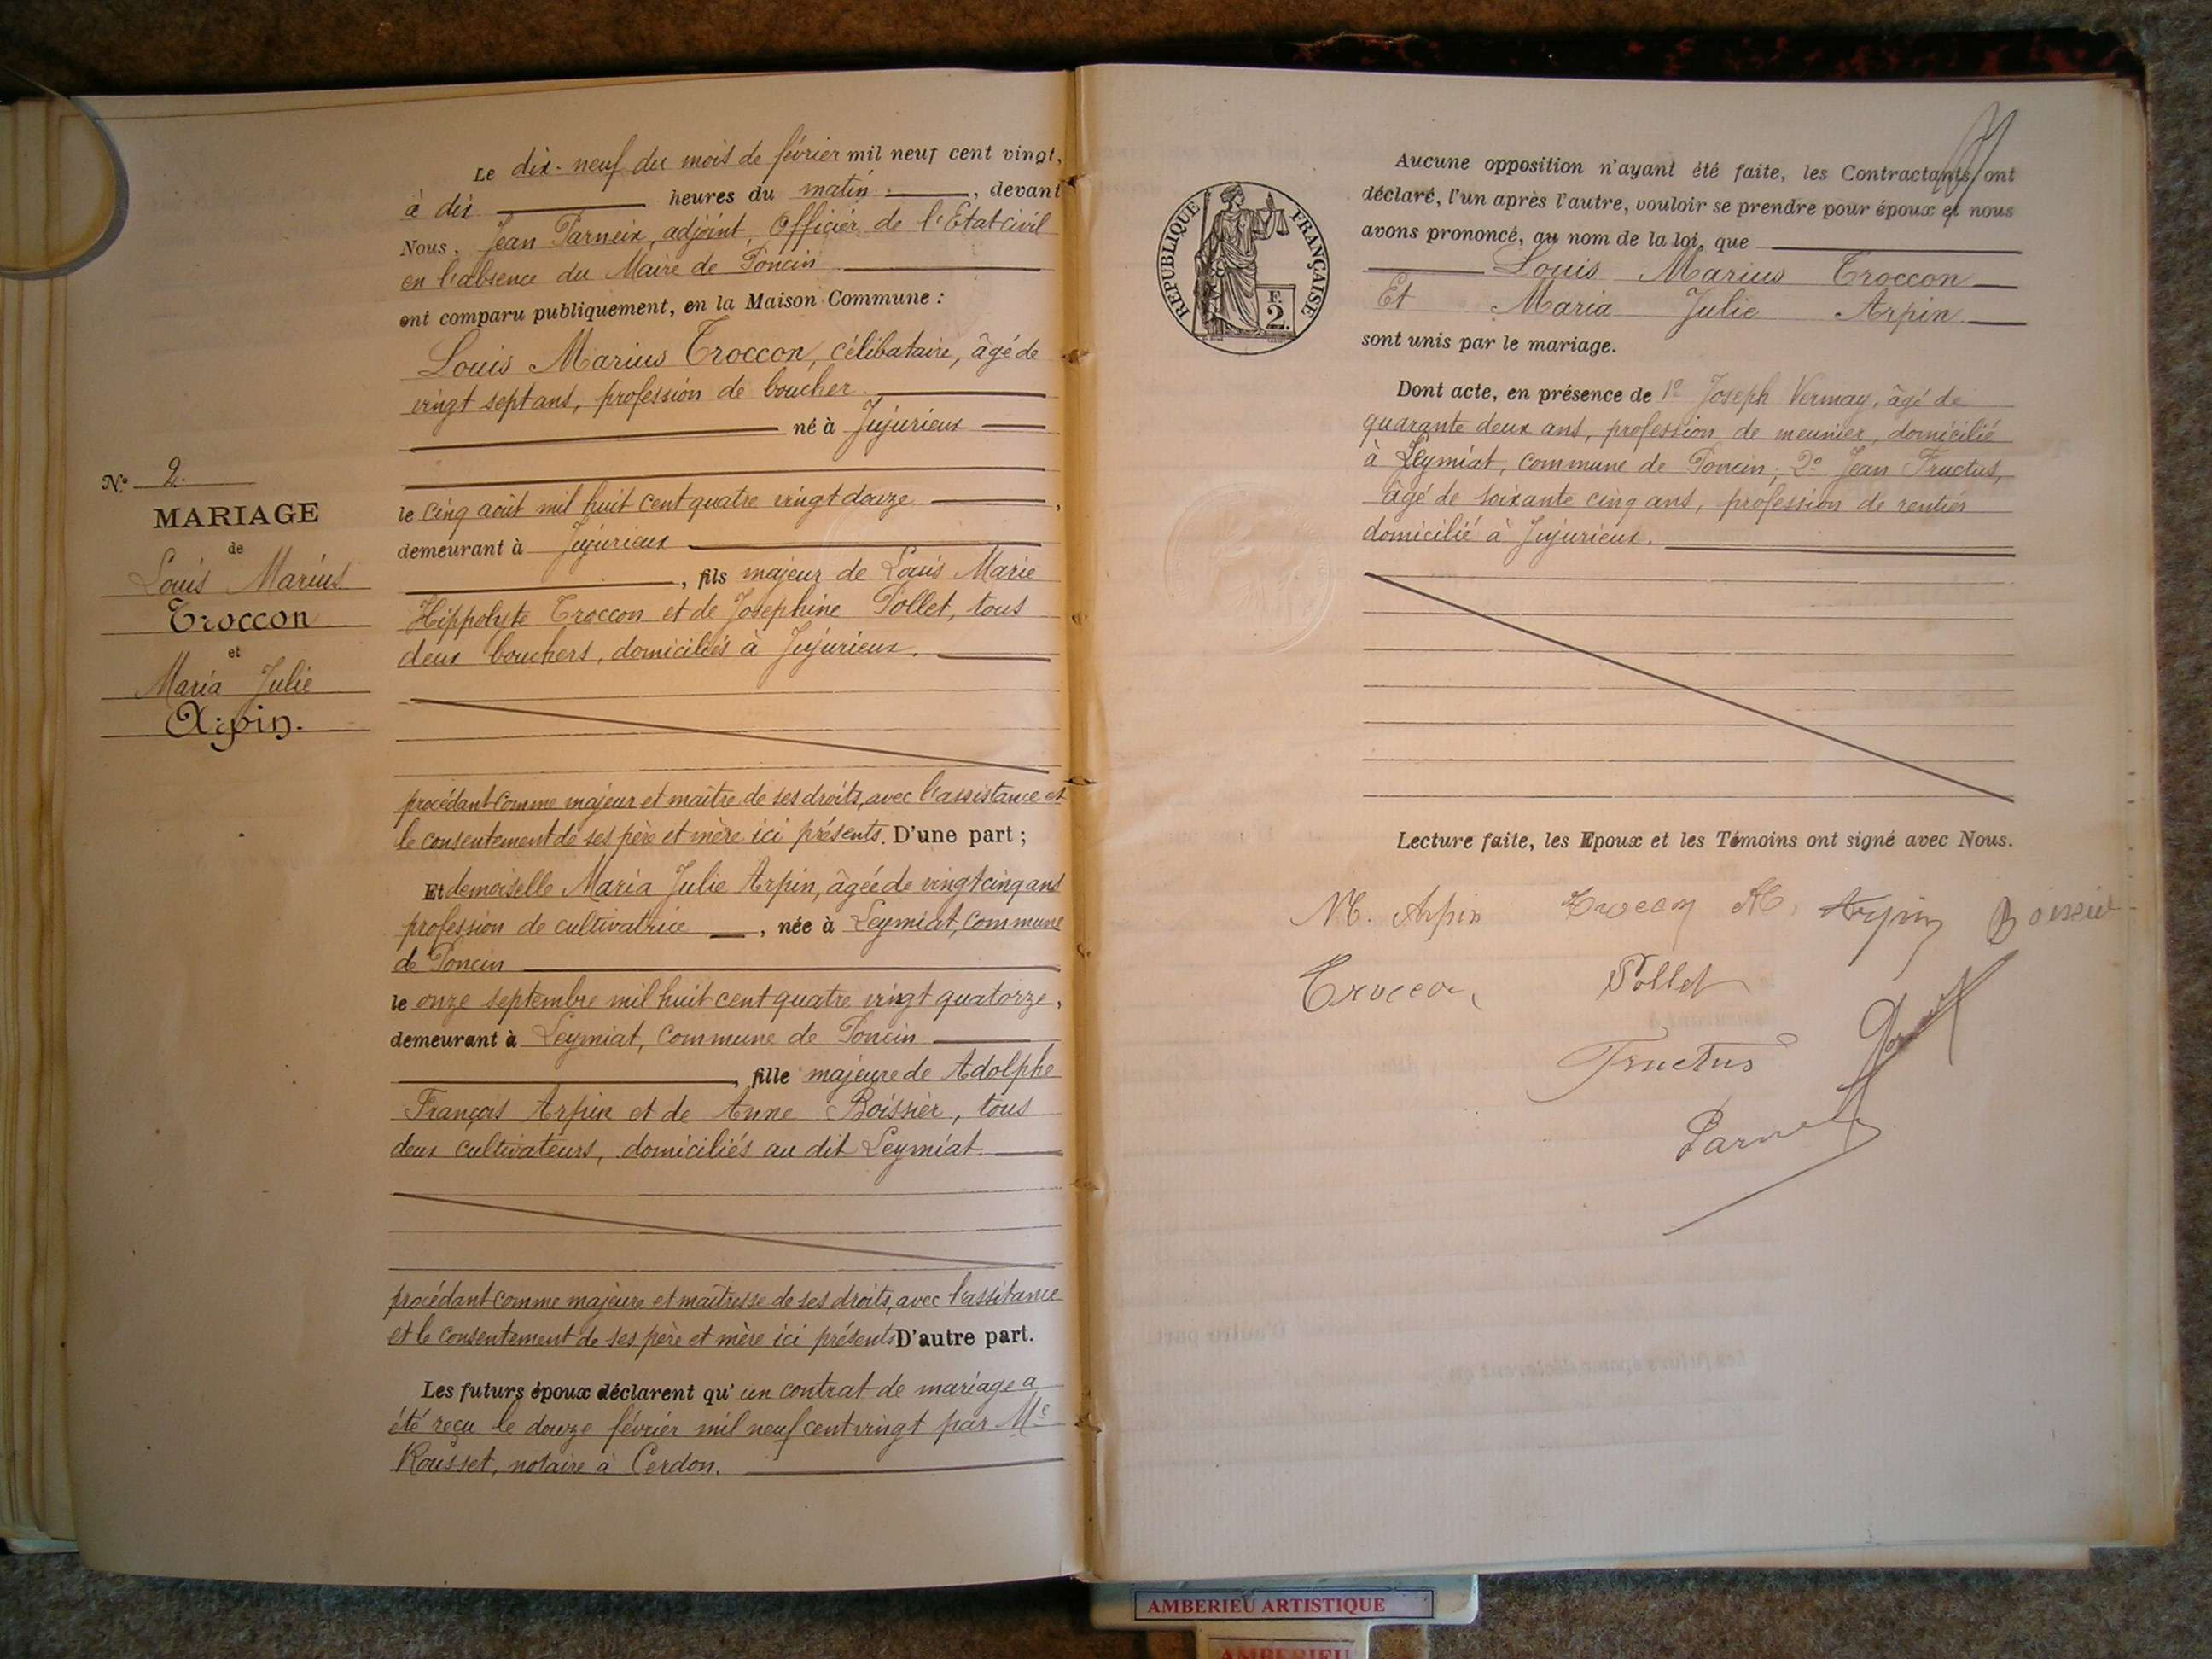 Le dix-neuf du mois de février mil neuf cent vingt,
à dix heures du matin, devant
Nous, Jean Parneix, adjoint, Officier de l'Etat civil
en l'absence du Maire de Poncin
ont comparu publiquement, en la Maison Commune :
Louis Marius Troccon, célibataire, âgé de
vingt sept ans, profession de boucher
né à Jujurieux
le cinq août mil huit cent quatre vingt douze,
demeurant à Jujurieux
, fils majeur de Louis Marie
Hippolyte Troccon et de Josephine Pollet, tous
deux bouchers, domiciliés à Jujurieux.
procédant comme majeur et maître de ses droits, avec l'assistance et
le consentement de ses père et mère ici présents. D'une part ;
Et demoiselle Maria Julie Arpin, âgée de vingt cinq ans
profession de cultivatrice, née à Leymiat, commune
de Poncin
le onze septembre mil huit cent quatre vingt quatorze,
demeurant à Leymiat, commune de Poncin
, fille majeure de Adolphe
François Arpin et de Anne Boissier, tous
deux cultivateurs, domiciliés au dit Leymiat.
procédant comme majeure et maîtresse de ses droits, avec l'assitance
et le consentement de ses père et mère ici présents D'autre part.
Les futurs époux déclarent qu'un contrat de mariage a
été reçu le douze février mil neuf cent vingt par Me
Rousset, notaire à Cerdon.
No 2.
MARIAGE
de
Louis Marius
Troccon
et
Maria Julie
Arpin.
REPUBLIQUE FRANÇAISE
F.
2.
Aucune opposition n'ayant été faite, les Contractants ont
déclaré, l'un après l'autre, vouloir se prendre pour époux et nous
avons prononcé, au nom de la loi, que
Louis Marius Troccon
Et Maria Julie Arpin
sont unis par le mariage.
Dont acte, en présence de 1o Joseph Vermay, âgé de
quarante deux ans, profession de meunier, domicilié
à Leymiat, commune de Poncin ; 2o Jean Fructus,
âgé de soixante cinq ans, profession de rentier
domicilié à Jujurieux.
Lecture faite, les Epoux et les Témoins ont signé avec Nous.
M. Arpin Troccon M. Arpin Boissier
Troccon Pollet
Fructus
AMBERIEU ARTISTIQUE
AMBERIEU